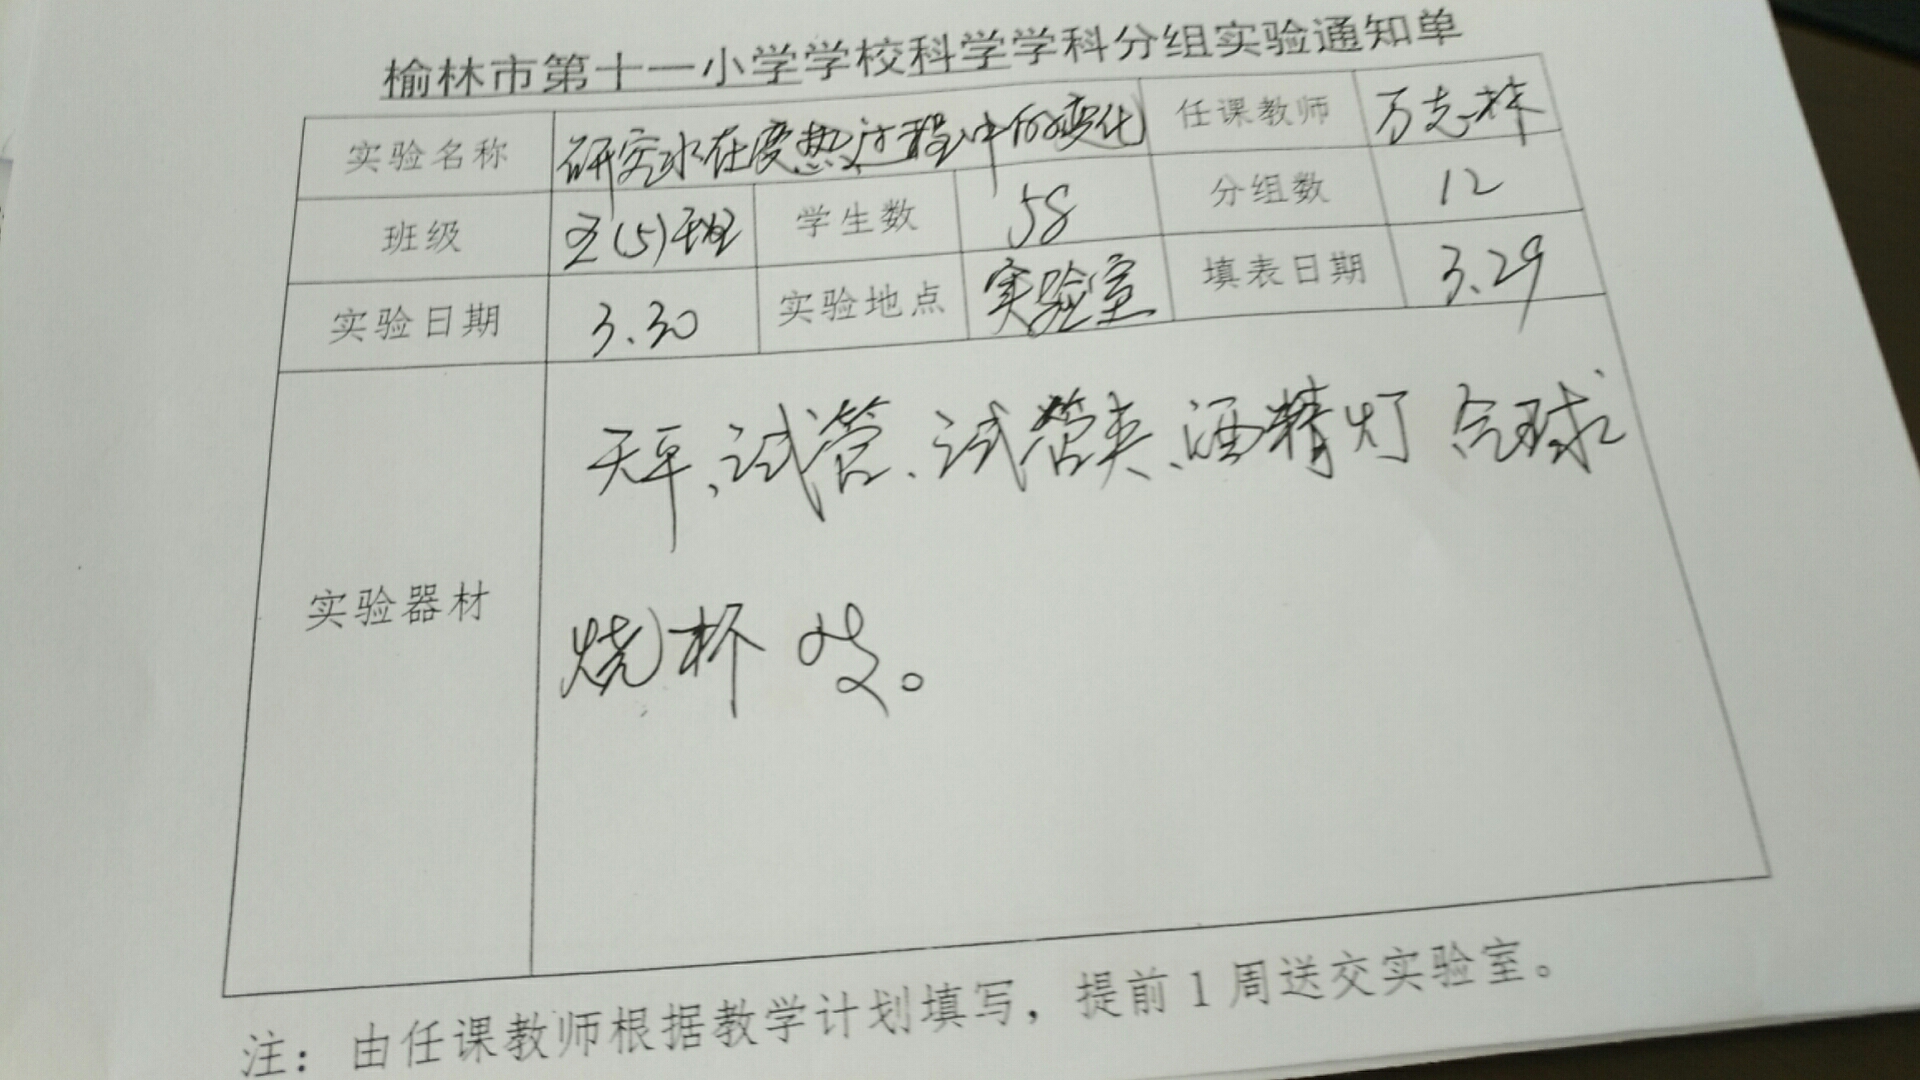 榆林市第十一小学学校科学学科分组实验通知单
实验名称 研究水在受热过程中的变化 任课教师 万志林
班级 五(5)班 学生数 58 分组数 12
实验日期 3.30 实验地点 实验室 填表日期 3.29
天平、试管、试管夹、酒精灯 气球
实验器材
烧杯
注：由任课教师根据教学计划填写，提前1周送交实验室。